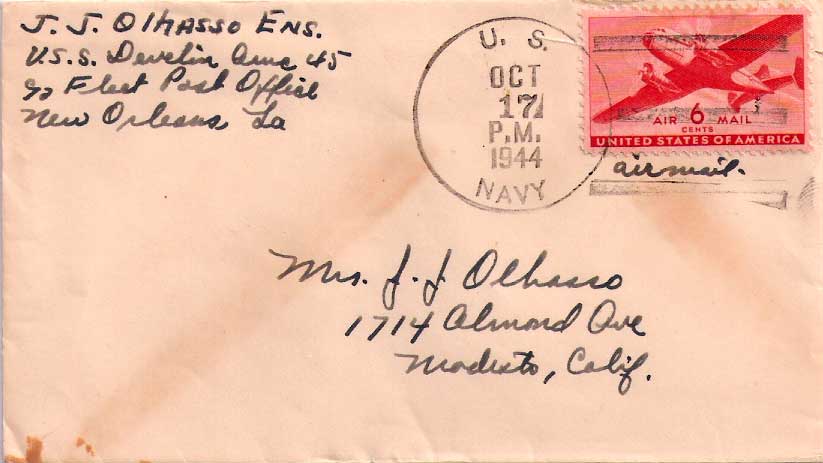 J. J. Olhasso Ens.
U.S.S. Develin Amc 45
c/o Fleet Post Office
New Orleans, La
U. S.
OCT
17
P.M.
1944
NAVY
AIR 6 MAIL
CENTS
UNITED STATES OF AMERICA
airmail.
Mrs. J. J. Olhasso
1714 Almond Ave
Modesto, Calif.